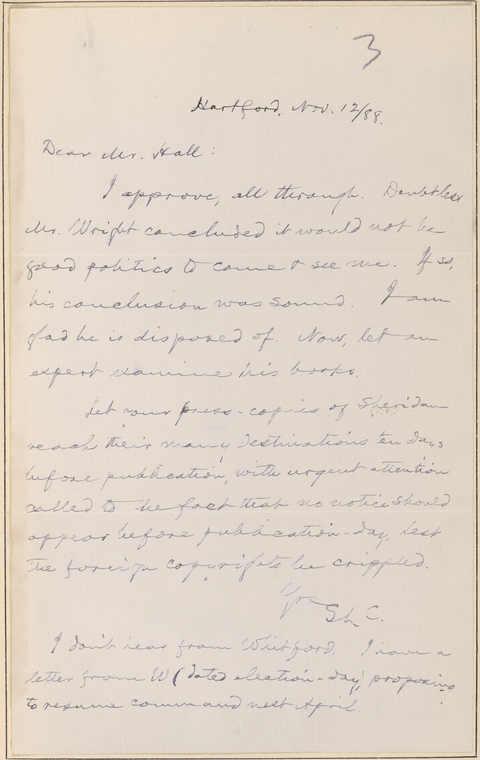 3
Hartford, Nov. 12/88.
Dear Mr. Hall:
I approve, all through. Doubtless
Mr. Wright concluded it would not be
good politics to come & see me. If so,
his conclusion was sound. I am
glad he is disposed of. Now, let an
expert examine his books.
Let your press-copies of Sheridan
reach their many destinations ten days
before publication, with urgent attention
called to the fact that no notice should
appear before publication-day, lest
the foreign copyrights be crippled.
Yrs SLC.
I don't hear from Whitford. I have a
letter from W (dated election-day), proposing
to resume command next April.